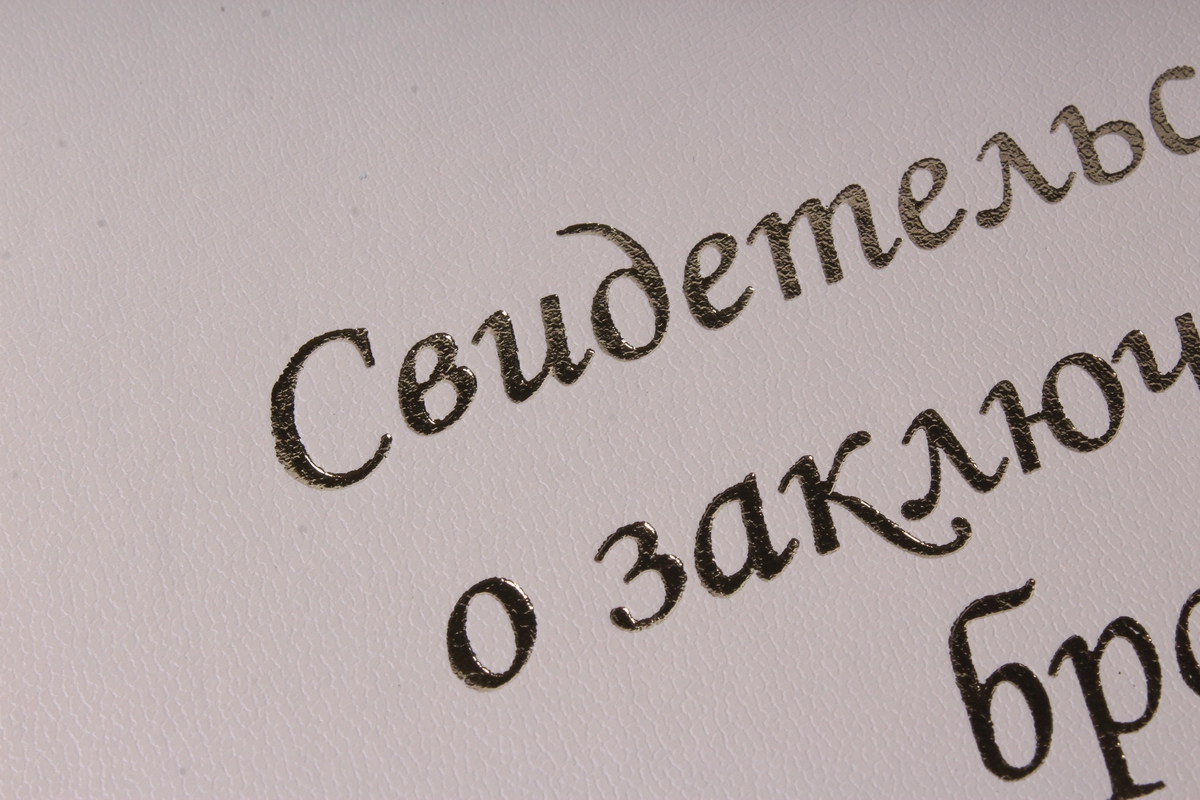 Свидетельс
о заключ
бра